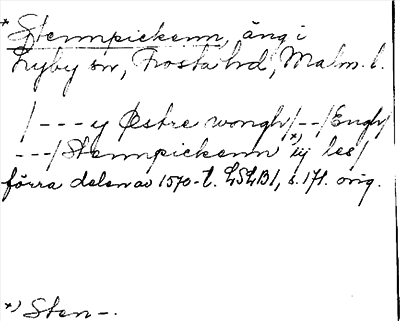 * Stennpickenn, äng i
Lyby sn, Frosta hd, Malm. l.
/--- y Østre wongh/--/Engh/
---/Stennpickenn *) iij less/
förra delen av 1570-t. LSLB1, s. 171. orig.
*) Sten-.